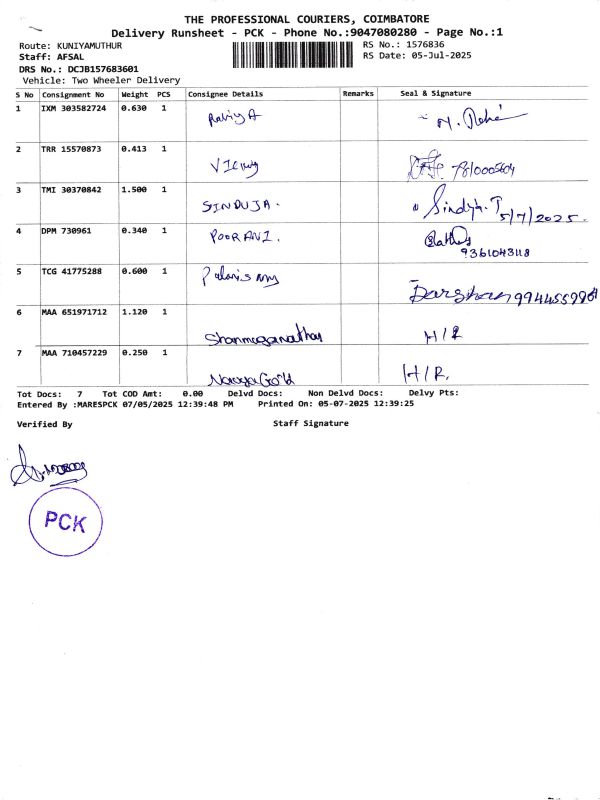 THE PROFESSIONAL COURIERS, COIMBATORE
Delivery Runsheet - PCK - Phone No.:9047080280 - Page No.:1
Route: KUNIYAMUTHUR
RS No.: 1576836
Staff: AFSAL
RS Date: 05-Jul-2025
DRS No.: DCJB157683601
Vehicle: Two Wheeler Delivery
S No Consignment No Weight PCS Consignee Details Remarks Seal & Signature
1 IXM 303582724 0.630 1
2 TRR 15570873 0.413 1
3 TMI 30370842 1.500 1 SINDUJA. Sindhja.T 5/7/2025.
4 DPM 730961 0.340 1 POORANI. 9361043118
5 TCG 41775288 0.600 1 Darshan
6 MAA 651971712 1.120 1 Shanmuganathan H/R
7 MAA 710457229 0.250 1 H/R.
Tot Docs: 7 Tot COD Amt: 0.00 Delvd Docs: Non Delvd Docs: Delvy Pts:
Entered By :MARESPCK 07/05/2025 12:39:48 PM Printed On: 05-07-2025 12:39:25
Verified By Staff Signature
PCK